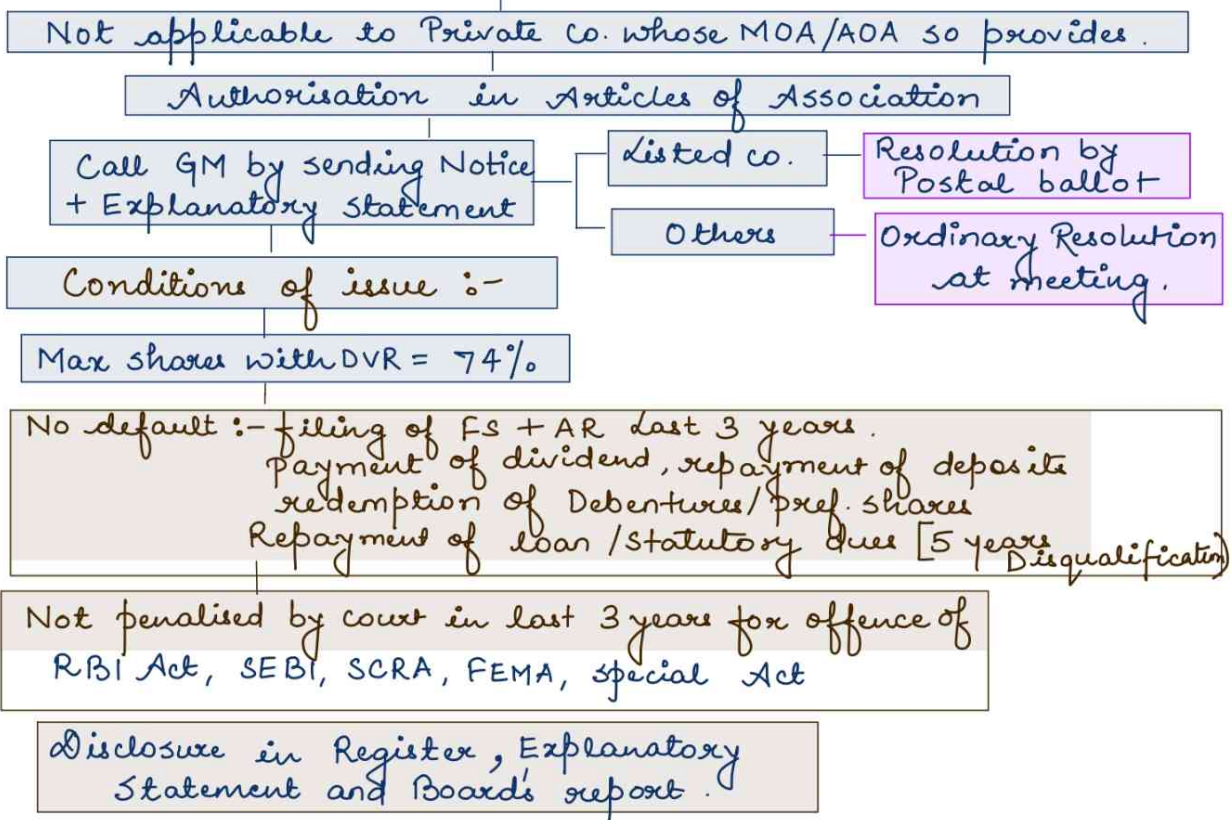 Not applicable to Private Co. whose MOA/AOA so provides.
Authorisation in Articles of Association
Call GM by sending Notice
+ Explanatory statement
Listed co.
Resolution by
Postal ballot
Others
Ordinary Resolution
at meeting.
Conditions of issue :-
Max shares with DVR = 74%
No default :- filing of FS + AR Last 3 years.
payment of dividend, repayment of deposits
redemption of Debentures/pref. shares
Repayment of loan /statutory dues [5 years
Disqualification)
Not penalised by court in last 3 years for offence of
RBI Act, SEBI, SCRA, FEMA, special Act
Disclosure in Register, Explanatory
Statement and Board's report.